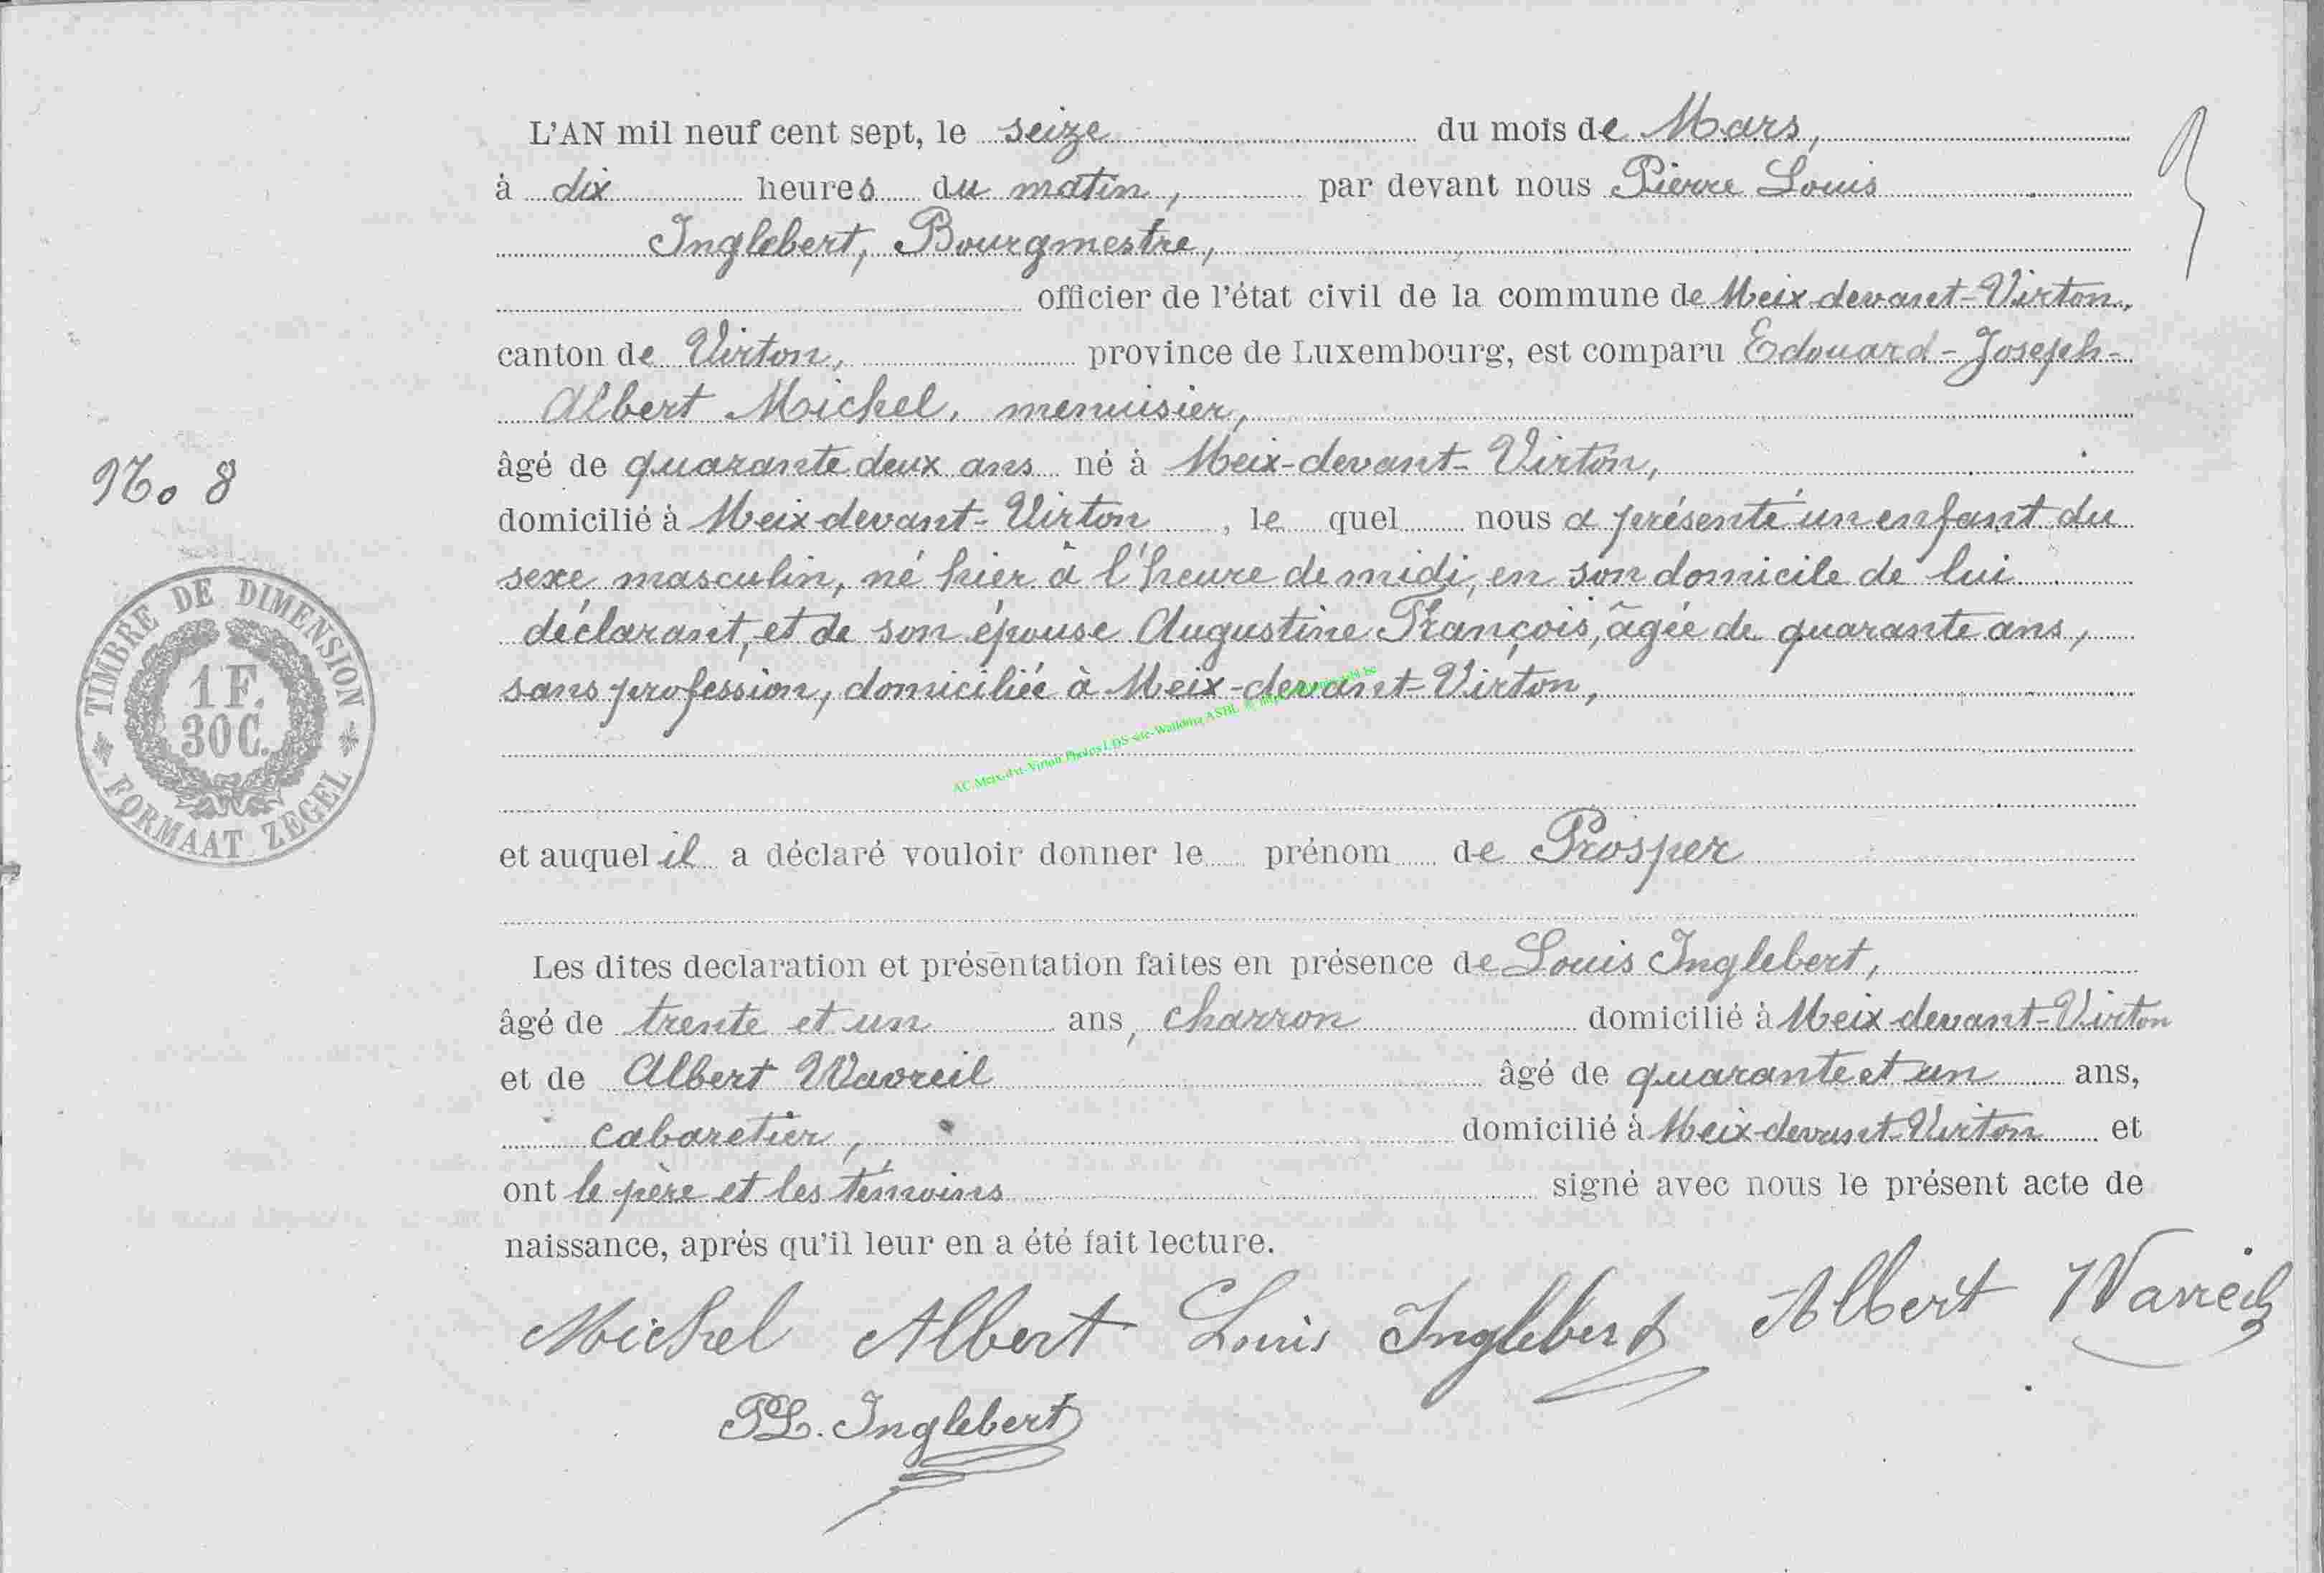 L'AN mil neuf cent sept, le seize du mois de Mars,
à dix heures du matin, par devant nous Pierre Louis
Inglebert, Bourgmestre,
officier de l'état civil de la commune de Meix-devant-Virton,
canton de Virton, province de Luxembourg, est comparu Edouard-Joseph-
Albert Michel, menuisier,
âgé de quarante deux ans né à Meix-devant-Virton,
No 8
domicilié à Meix-devant-Virton, le quel nous a présenté un enfant du
sexe masculin, né hier à l'heure de midi, en son domicile de lui
déclarant, et de son épouse Augustine François, âgée de quarante ans,
sans profession, domiciliée à Meix-devant-Virton,
TIMBRE DE DIMENSION
1 F.
30 C.
FORMAAT ZEGEL
et auquel il a déclaré vouloir donner le prénom de Prosper
Les dites declaration et présentation faites en présence de Louis Inglebert,
âgé de trente et un ans, charron domicilié à Meix-devant-Virton
et de Albert Wavreil âgé de quarante et un ans,
cabaretier, domicilié à Meix-devant-Virton et
ont le père et les témoins signé avec nous le présent acte de
naissance, après qu'il leur en a été fait lecture.
Michel Albert Louis Inglebert Albert Wavreil
PL. Inglebert